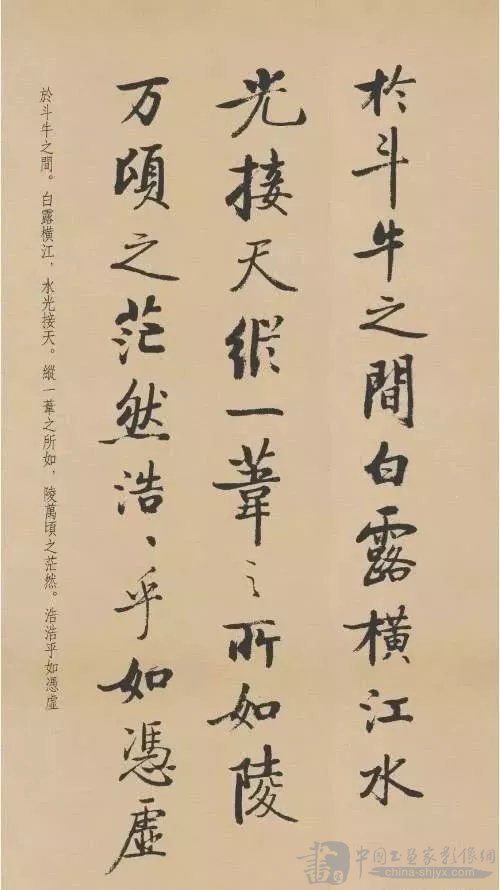 於斗牛之間白露橫江水
光接天縱一葦之所如陵
万頃之茫然浩〻乎如憑虛
於斗牛之間。白露橫江，水光接天。縱一葦之所如，陵萬頃之茫然。浩浩乎如憑虛
書 中國书画家影像網
china-shjyx.com